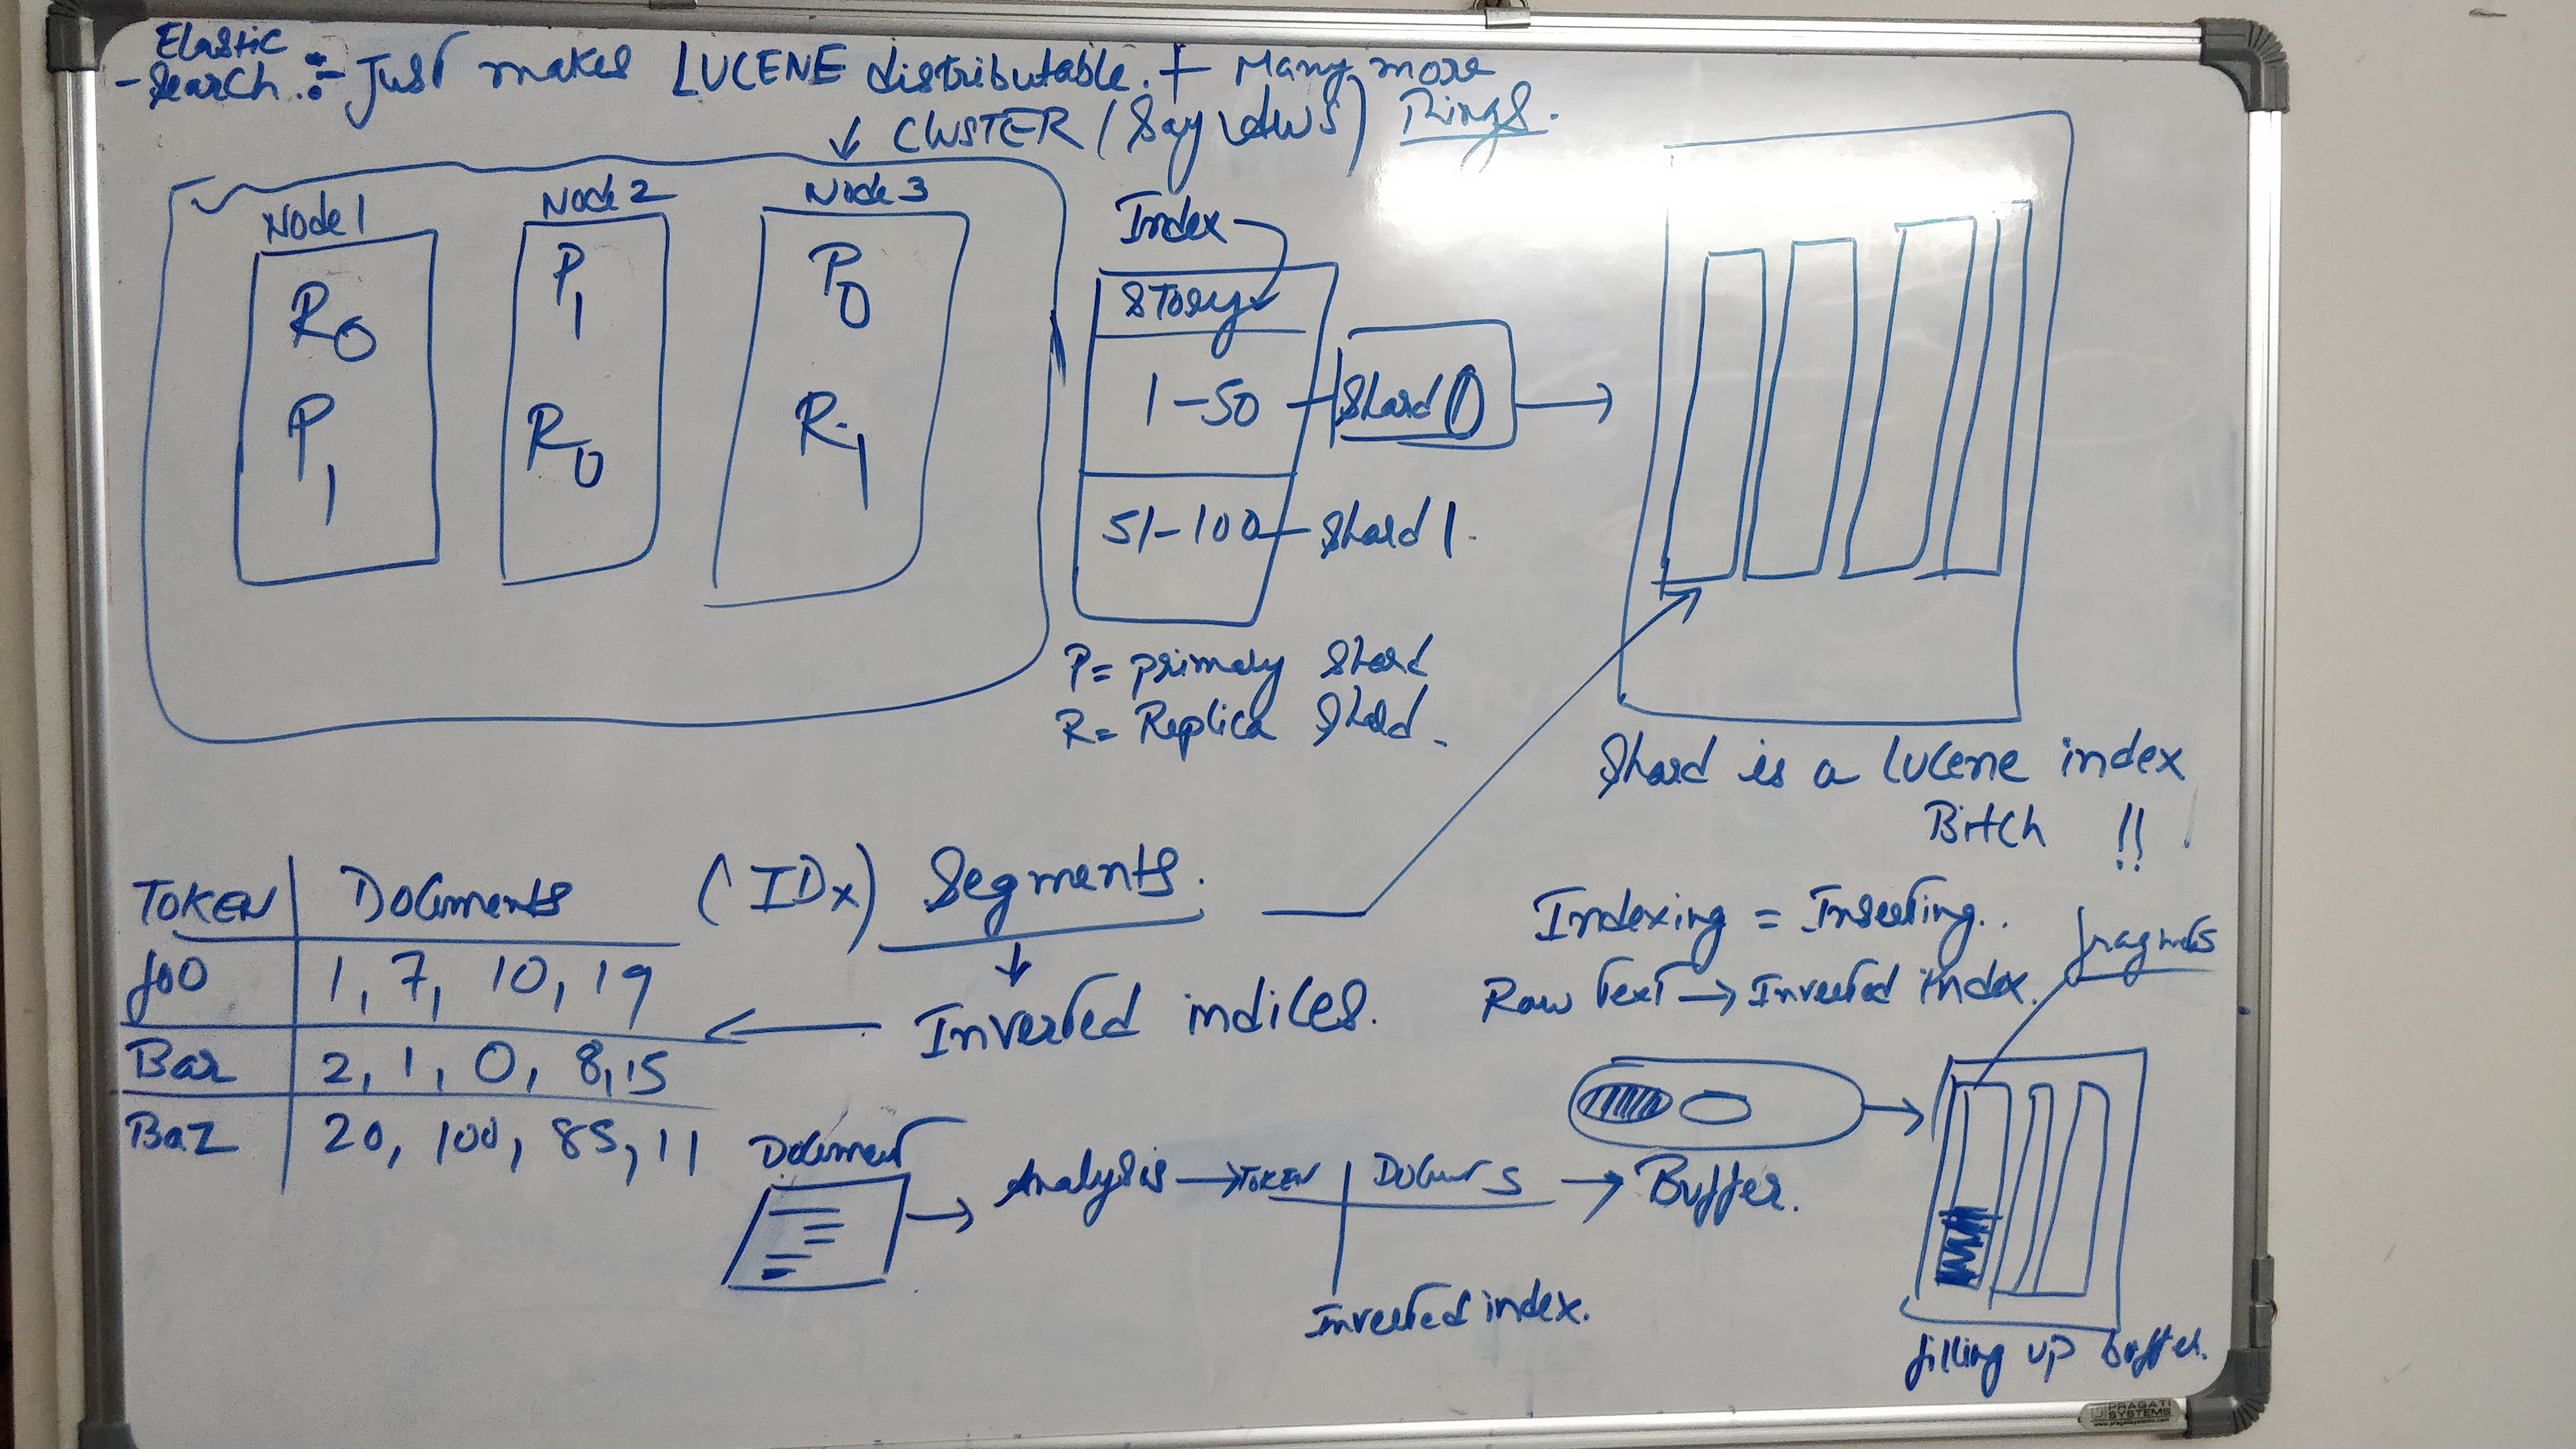 Elastic
- Search :- Just makes LUCENE distributable. + Many more
Things.
CLUSTER (Say AWS)
Node 1
R0
P1
Node 2
P1
R0
Node 3
P0
R1
Index
Story
1-50
Shard 0
51-100
Shard 1.
P= primary Shard
R= Replica Shard.
Shard is a Lucene index
Bitch !!
TOKEN Documents
foo 1, 7, 10, 19
Bar 2, 1, 0, 8, 15
Baz 20, 100, 85, 11
(IDx) Segments.
Inverted indices.
Indexing = Inserting..
Raw Text → Inverted index.
fragmets
Document
→ Analysis → TOKEN → Buffer.
Inverted index.
filling up buffer.
PRAGATI
SYSTEMS